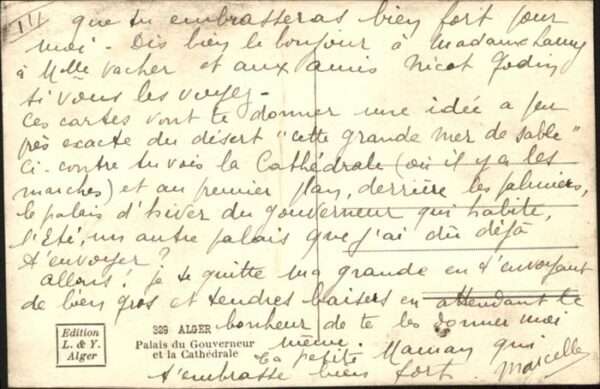 III
que tu embrasseras bien fort pour
moi - Dis bien le bonjour à Madame Lamy
à Mlle Vacher et aux amis Nicot Godin
si vous les voyez -
Ces cartes vont te donner une idée a peu
près exacte du désert "cette grande mer de sable"
ci-contre tu vois la Cathédrale (où il y a les
marches) et au premier plan, derrière les palmiers,
le palais d'hiver du gouverneur qui habite,
l'Eté, un autre palais que j'ai dû déjà
t'envoyer ?
Allons ! je te quitte ma grande en t'envoyant
de bien gros et tendres baisers en attendant le
bonheur de te les donner moi
même.
ta petite Maman qui
t'embrasse bien fort. Marcelle
Edition
L. & Y.
Alger
329 ALGER
Palais du Gouverneur
et la Cathédrale